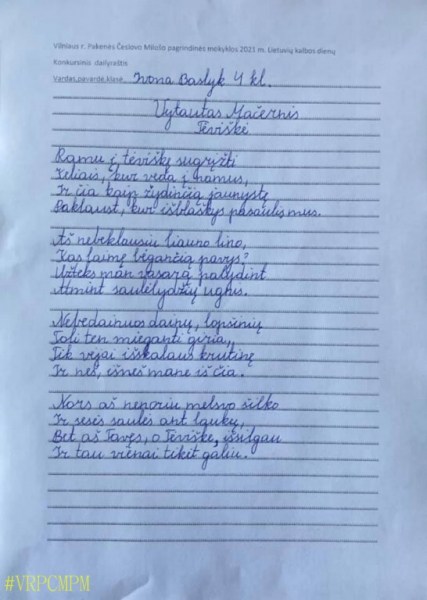 Vilniaus r. Pakenės Česlovo Milošo pagrindinės mokyklos 2021 m. Lietuvių kalbos dienų
Konkursinis dailyraštis
Vardas,pavardė,klasė. Ivona Baslyk 4 kl.
Vytautas Mačernis
Tėviškė
Ramu į tėviškę sugrįžti
Keliais, kur veda į namus,
Ir čia kaip žydinčią jaunystę
Paklaust, kur išblaškys pasaulis mus.
Aš nebeklausiu liauno lino,
Kas laimę bėgančią pavys?
Užteks man vasarą palydint
Atmint saulėlydžių ugnis.
Nebedainuos dainų, lopšinių
Toli ten mieganti giria,
Tik vėjai išskalaus krūtinę
Ir neš, išneš mane iš čia.
Nors aš neporiu melsvo šilko
Ir sesės saulės ant laukų,
Bet aš Tavęs, o Tėviške, išsilgau
Ir tau vienai tikėt galiu.
#VRPCMPM